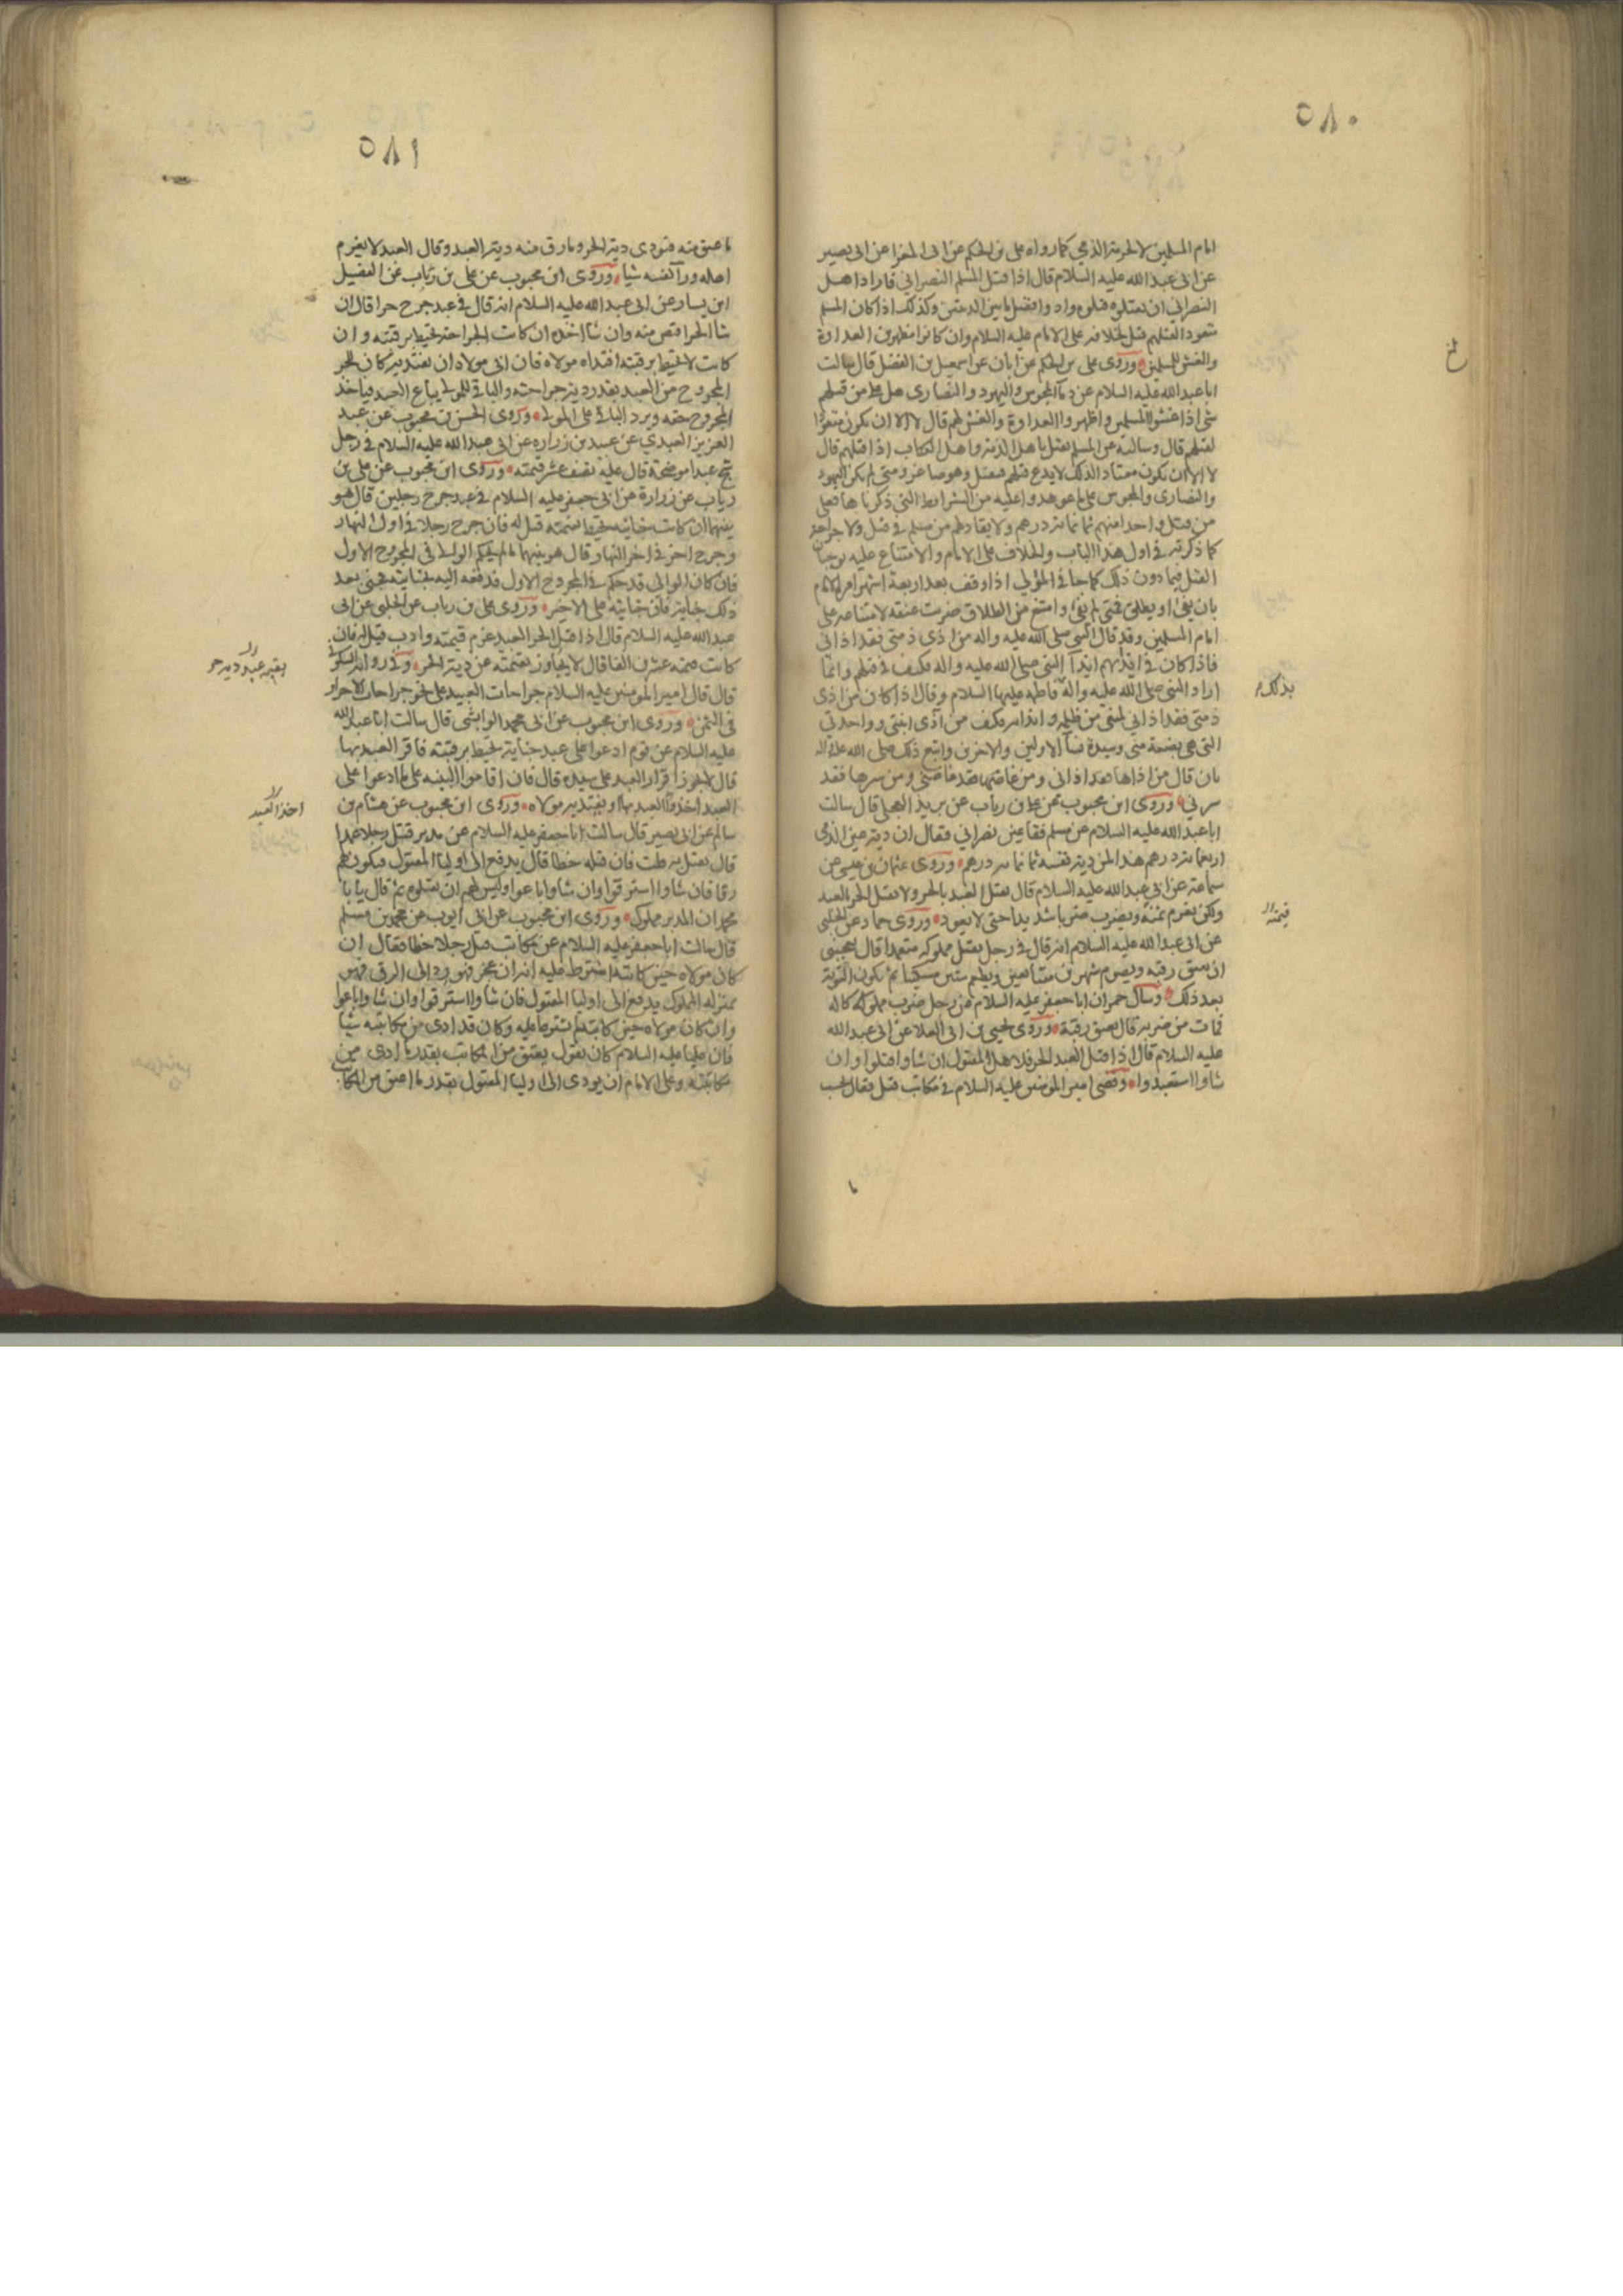 ٥٨٠
امام المسلمين لا لحرمة الذمي كما رواه علي بن الحكم عن ابي المغرا عن ابي بصير
عن ابي عبد الله عليه السلام قال اذا قتل المسلم النصراني فاراد اهل
النصراني ان يقتلوه قتلوه وادوا فضل ما بين الديتين وكذلك اذا كان المسلم
متعود القتلهم قتل لخلافه على الامام عليه السلام وان كانوا مظهرين العداوة
والغش للمسلمين وروى علي بن الحكم عن ابان عن اسمعيل بن الفضل قال سالت
ابا عبد الله عليه السلام عن دما المجوس واليهود والنصارى هل على من قتلهم
شي اذا غشوا المسلمين واظهروا العداوة والغش لهم قال لا الا ان يكون متعودا
لقتلهم قال وسالته عن المسلم يقتل باهل الذمة واهل الكتاب اذا قتلهم قال
لا الا ان يكون معتادا لذلك لا يدع قتلهم فيقتل وهو صاغر ومتى لم يكن اليهود
والنصارى والمجوس على ما عوهدوا عليه من الشرايط التي ذكرناها فعلى
من قتل واحدا منهم ثمانمائة درهم ولا يقاد لهم من مسلم في قتل ولا جراحة
كما ذكرته في اول هذا الباب والخلاف على الامام والامتناع عليه يوجبان
القتل فيما دون ذلك كما جا في المؤلي اذا وقف بعد اربعة اشهر امره الامام
بان يفئ او يطلق فمتى لم يفئ وامتنع من الطلاق ضربت عنقه لامتناعه على
امام المسلمين وقد قال النبي صلى الله عليه واله من اذى ذمتي فقد اذاني
فاذا كان في ايذائهم ايذآ النبي صلى الله عليه واله فكيف في قتلهم وانما
اراد النبي صلى الله عليه واله فاطمه عليها السلام وقال اذا كان من اذى
بذلك
ذمتي فقد اذاني لمنعي من ظلمه وايذائه فكيف من آذى ابنتي وواحدتي
التي هي بضعة مني وسيدة نسآ الاولين والاخرين واتبع ذلك صلى الله عليه واله
بان قال من اذاها فقد اذاني ومن غاضها فقد غاضني ومن سرها فقد
سرني وروى ابن محبوب عن علي بن رياب عن بريد العجلي قال سالت
ابا عبد الله عليه السلام عن مسلم فقا عين نصراني فقال ان دية عين الذمي
اربعمائة درهم هذا لمن دية نفسه ثمانمائة درهم وروى عثمان بن عيسى عن
سماعة عن ابي عبد الله عليه السلام قال يقتل العبد بالحر ولا يقتل الحر بالعبد
ولكن يغرم ثمنه ويضرب ضربا شديدا حتى لا يعود وروى حماد عن الحلبي
قيمته
عن ابي عبد الله عليه السلام انه قال في رجل يقتل مملوكه متعمدا قال يعجبني
ان يعتق رقبه ويصوم شهرين متتابعين ويطعم ستين مسكينا ثم تكون التوبة
بعد ذلك وسال حمران ابا جعفر عليه السلام عن رجل ضرب مملوكا له
فمات من ضربه قال يعتق رقبة وروى يحيى بن ابي العلا عن ابي عبد الله
عليه السلام قال اذا قتل العبد الحر فلاهل المقتول ان شاوا قتلوا وان
شاوا استعبدوا وقضى امير المومنين عليه السلام في مكاتب قتل فقال يحسب
٥٨١
ما عتق منه فتودى دية الحر وما رق منه دية العبد وقال العبد لا يغرم
اهله ورآ نفسه شيا وروى ابن محبوب عن علي بن رياب عن الفضيل
ابن يسار عن ابي عبد الله عليه السلام انه قال في عبد جرح حرا قال ان
شا الحر اقتص منه وان شا اخذه ان كانت الجراحة تحيط برقبته وان
كانت لا تحيط برقبته افتداه مولاه فان ابى مولاه ان يفتديه كان للحر
المجروح من العبد بقدر دية جراحته والباقي للمولى يباع العبد فياخذ
المجروح حقه ويرد الباقي على المولى وروى الحسن بن محبوب عن عبد
العزيز العبدي عن عبيد بن زراره عن ابي عبد الله عليه السلام في رجل
شج عبدا موضحة قال عليه نصف عشر قيمته وروى ابن محبوب عن علي بن
رياب عن زرارة عن ابي جعفر عليه السلام في عبد جرح رجلين قال هو
بينهما ان كانت جنايته تحيط بقيمته قيل له فان جرح رجلا في اول النهار
وجرح اخر في اخر النهار قال هو بينهما ما لم يحكم الوالي في المجروح الاول
فان كان الوالي قد حكم في المجروح الاول فدفعه اليه بجنايته فجنى بعد
ذلك جناية فان جنايته على الاخير وروى علي بن رياب عن الحلبي عن ابي
عبد الله عليه السلام قال اذا قتل الحر العبد غرم قيمته وادب قيل له فان
كانت قيمته عشرين الفا قال لا يجاوز بقيمته عن دية الحر وفي رواية السكوني
بقيمة عبد دية حر
قال قال امير المومنين عليه السلام جراحات العبيد على نحو جراحات الاحرار
في الثمن وروى ابن محبوب عن ابي محمد الوابشي قال سالت ابا عبد الله
عليه السلام عن قوم ادعوا على عبد جناية تحيط برقبته فاقر العبد بها
قال لا يجوز اقرار العبد على سيده قال فان اقاموا البينه على ما ادعوا على
العبد اخذوا العبد بها او يفتديه مولاه وروى ابن محبوب عن هشام بن
اخذ العبد
سالم عن ابي بصير قال سالت ابا جعفر عليه السلام عن مدبر قتل رجلا عمدا
قال يقتل به قلت فان قتله خطا قال يدفع الى اوليا المقتول فيكون لهم
رقا فان شاوا استرقوا وان شاوا باعوا وليس لهم ان يقتلوه ثم قال يا با
محمد ان المدبر مملوك وروى ابن محبوب عن ابي ايوب عن محمد بن مسلم
قال سالت ابا جعفر عليه السلام عن مكاتب قتل رجلا خطا فقال ان
كان مولاه حين كاتبه اشترط عليه انه ان عجز فهو رد الى الرق فهو
بمنزله المملوك يدفع الى اوليا المقتول فان شاوا استرقوا وان شاوا باعوا
وان كان مولاه حين كاتبه لم يشترط عليه وكان قد ادى من مكاتبته شيا
فان عليا عليه السلام كان يقول يعتق من المكاتب بقدر ما ادى من
مكاتبته وعلى الامام ان يودي الى اوليا المقتول بقدر ما اعتق من المكاتب